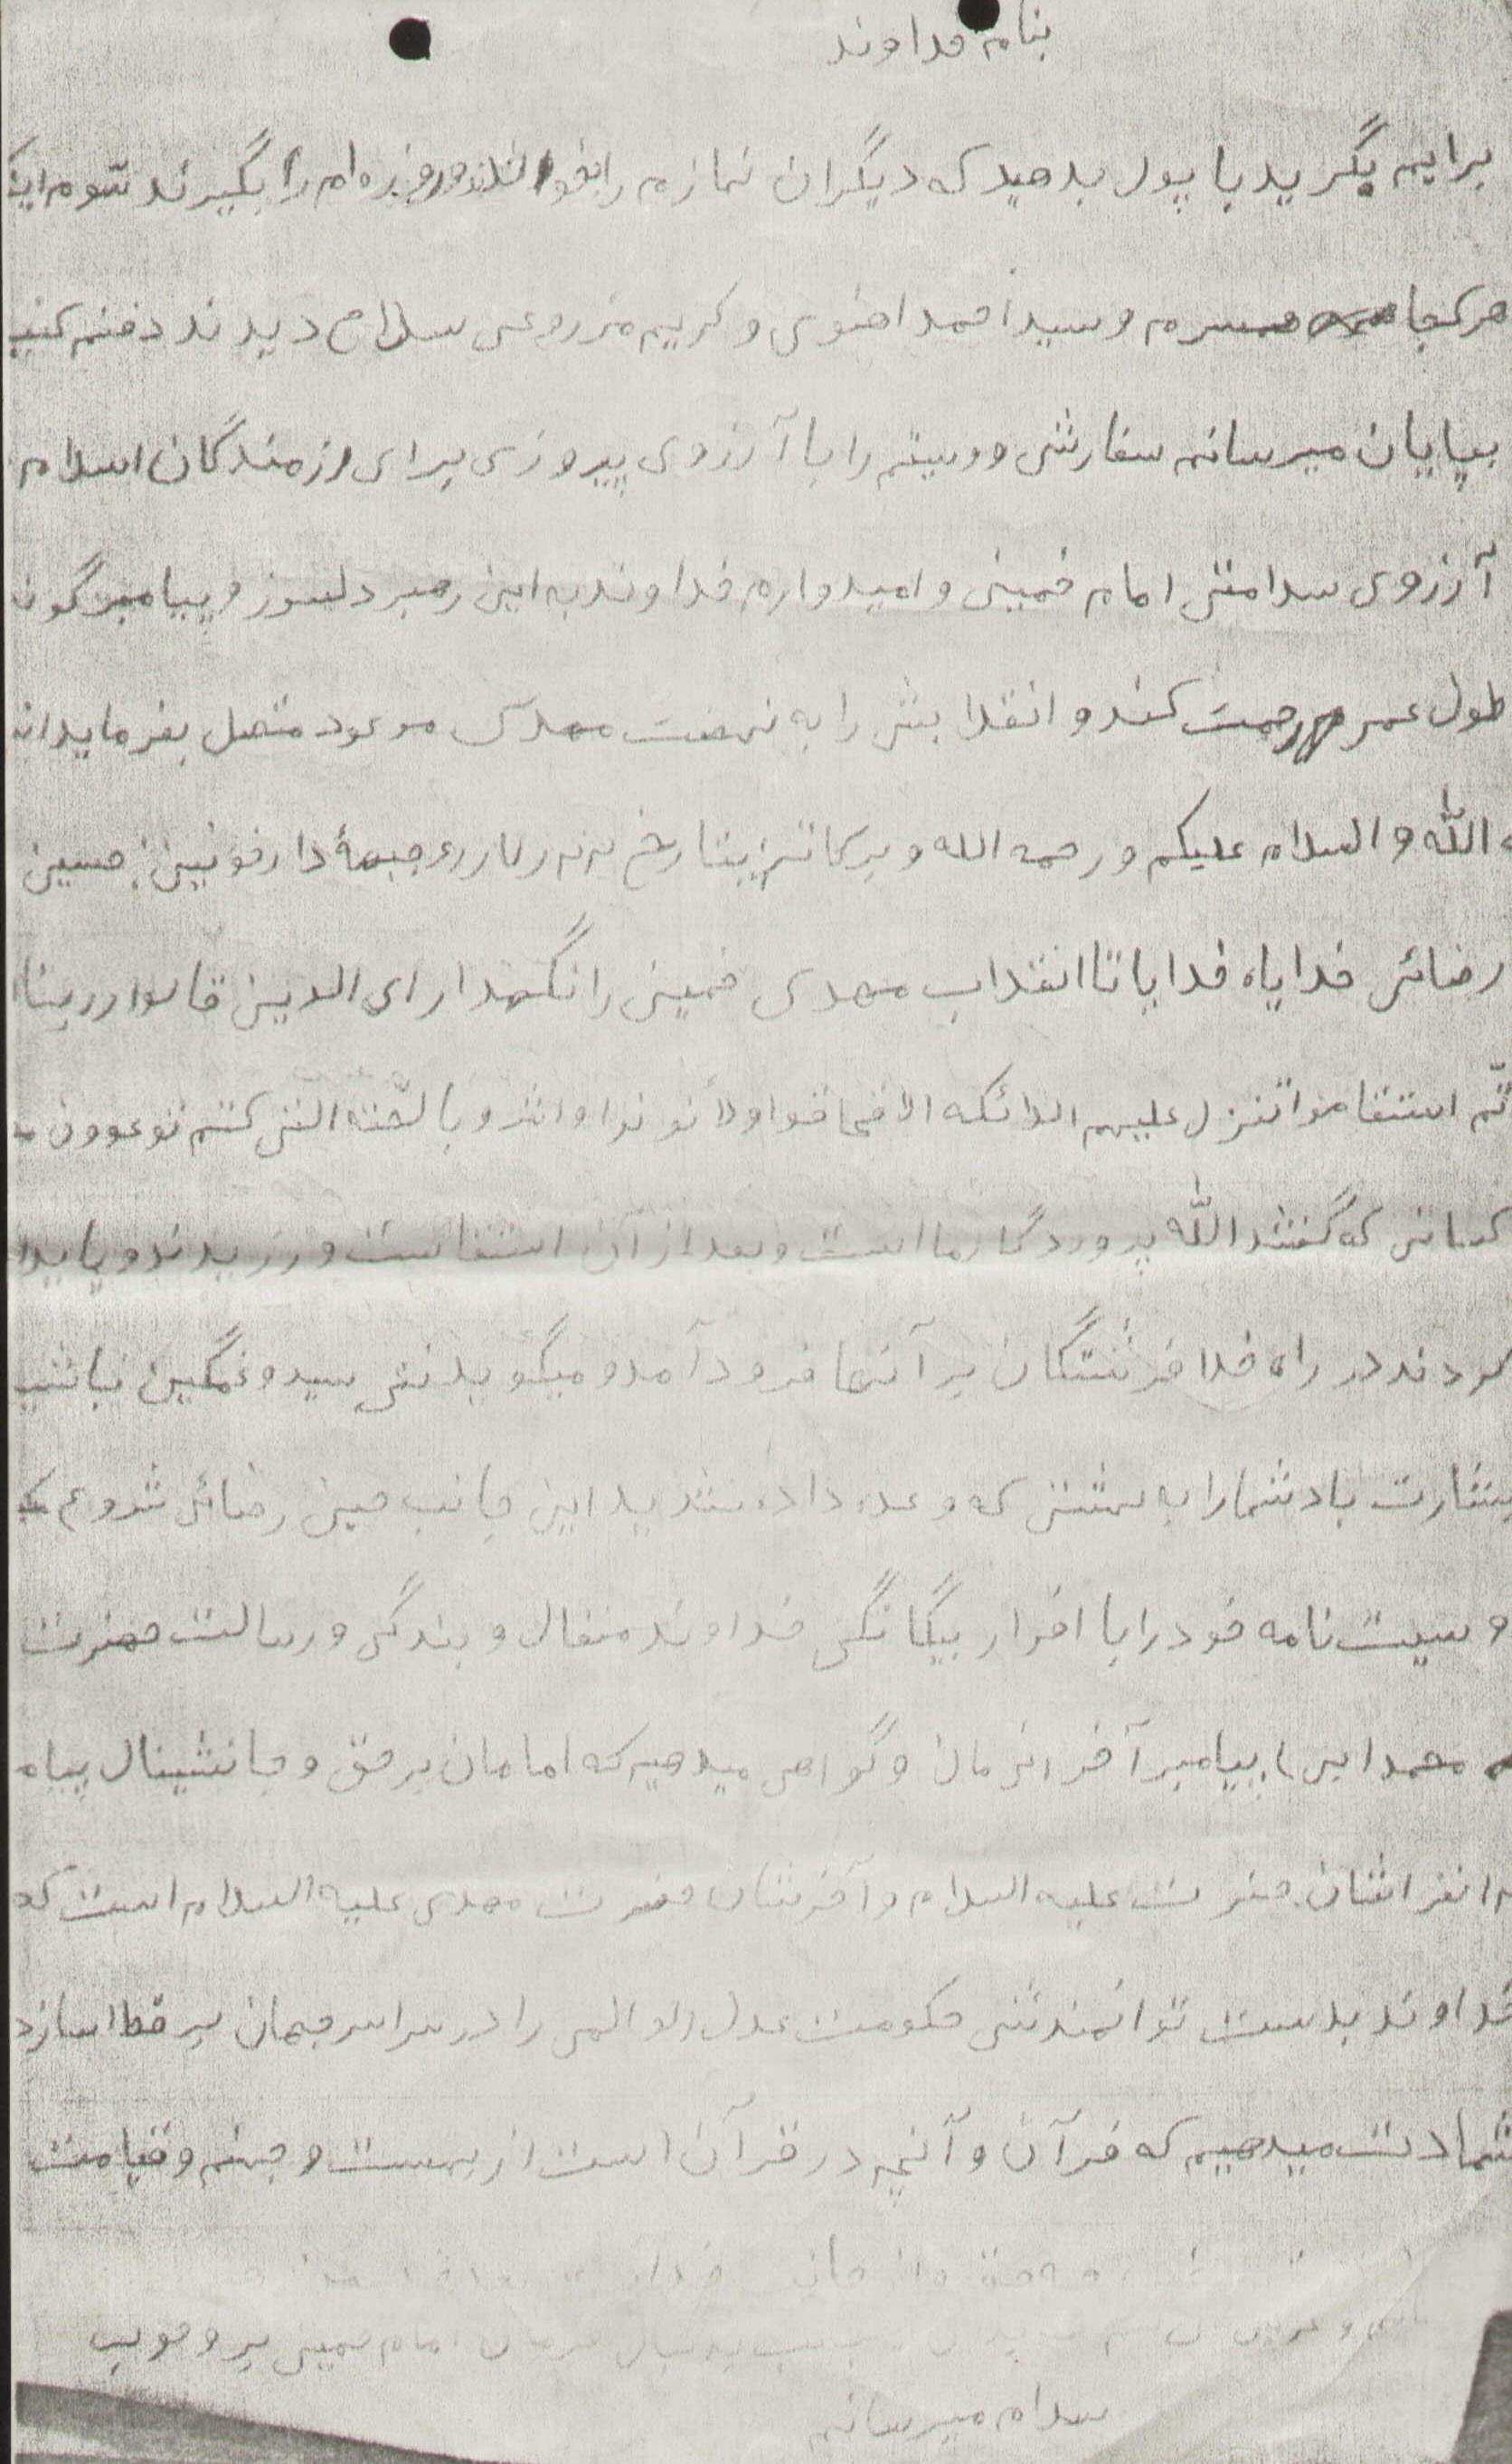 بنام خداوند
برایم بگرید یا پول بدهید که دیگران نمازم را بخوانند و روزه ام را بگیرند سّوم اینکه
هر کجا همسرم و سید احمد اخوی و کریم مزروعی سلاح دیدند دفنم کنید
بپایان میرسانم سفارشی ووسیتم را با آرزوی پیروزی برای رزمندگان اسلام
آرزوی سلامتی امام خمینی و امیدوارم خداوند به این رهبر دلسوز و پیامبر گون
طول عمر مرحمت کند و انقلابش را به نهضت مهدی موعود متصل بفرماید انشا
ء اللّه والسلام علیکم و رحمه الله و برکاته بتاریخ جبههٔ دارخوئین: حسین
رضائی خدایاه خدایا تا انقلاب مهدی خمینی را نگهدار ای الدین قالوا ربنا
ثّم استقاموا تنزل علیهم الملائکه الا فخافوا ولا وابشرو بالجّنه التی کنتم توعوون
کسانی که گفتند اللّه پروردگار ما است و بعد از آن استقامت ورزیدند و پایدا
کردند در راه خدا فرشتگان بر آنها فرود آمد و میگوید نترسید و غمگین نباشید
بشارت باد شما را به بهشتی که وعده داده شدید این جانب حسین رضائی شروع
وسیت نامه خود را با اقرار بیگانگی خداوند متعال و بندگی و رسالت حضرت
محمد (ص) پیامبر آخر الزمان و گواهی میدهیم که امامان بر حق و جانشینال پیام
حضرت علیه السلام و آخرشان حضرت مهدی علیه السلام است که
خداوند بدست توانمندش حکومت عدل را در سراسر جهان بر قطا سازد
شهادت میدهیم که قرآن و آنچه در قرآن است از بهست و جهنم و قیامت
امام خمینی بر و جوب
سلام میرسانم